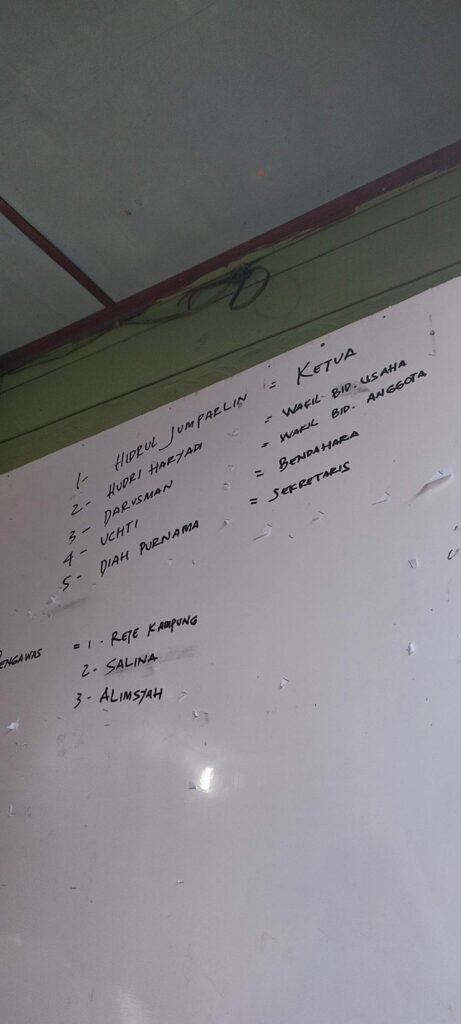 1- HIDRUL JUMPARLIN = KETUA
2- HUDRI HARYADI = WAKIL BID. USAHA
3- DARUSMAN = WAKIL BID. ANGGOTA
4- UCHTI = BENDAHARA
5- DIAH PURNAMA = SEKRETARIS
ENGAWAS = 1. REJE KAMPUNG
2- SALINA
3- ALIMSYAH